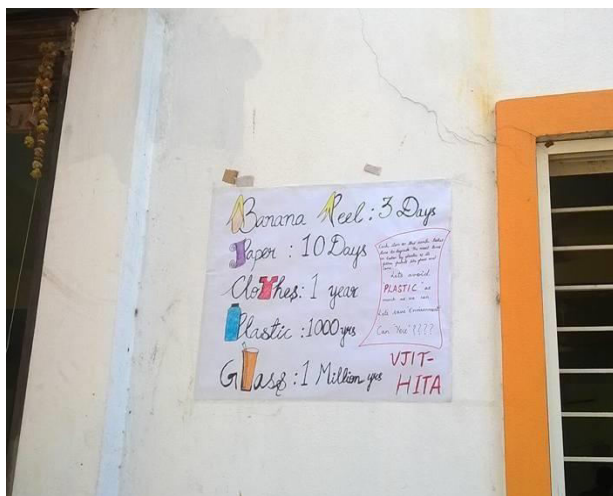 Banana Peel : 3 Days
Paper : 10 Days
Clothes : 1 year
Plastic : 1000 yrs
Glass : 1 Million yrs
Lets avoid
PLASTIC as
much as we can
Lets save Environment
Can "You" ????
VJIT-
HITA